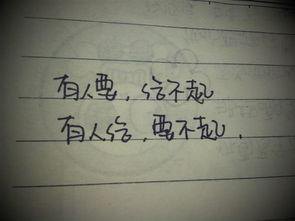 有人要，给不起
有人给，要不起．